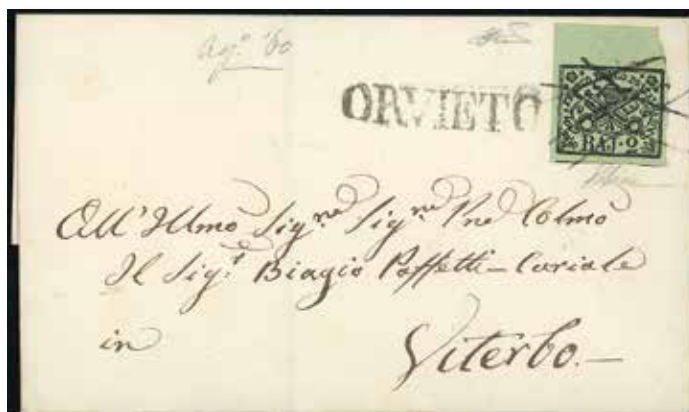 Ag.º '60
ORVIETO
BAJ. 2
All'Illmo Sig.ne Sig.ne Pne Colmo
Il Sig.r Biagio Poffetti - Curiale
in
Viterbo.—